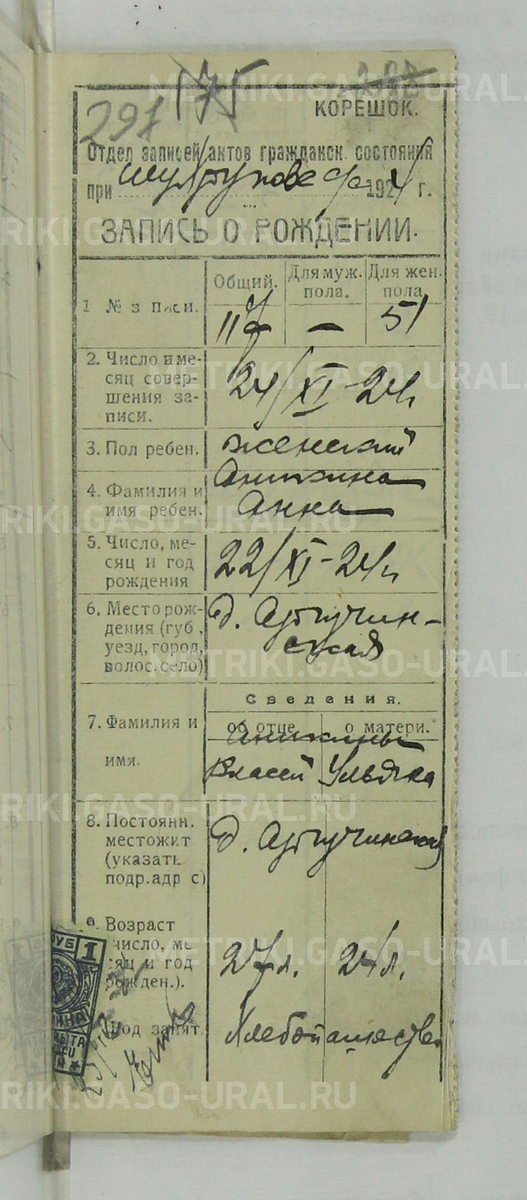 175
297
КОРЕШОК.
Отдел записей актов гражданск. состояния
при 1924 г.
ЗАПИСЬ О РОЖДЕНИИ.
1 № з писи. Общий. Для муж. пола. Для жен. пола
117 — 51
2. Число и месяц совершения записи. 24/XI-24г.
3. Пол ребен. женский
4. Фамилия и имя ребен. Аникина
Анна
5. Число, месяц и год рождения 22/XI-24г.
6. Место рождения (губ, уезд, город, волос. село) д. Артучин-
ская
Сведения.
об отце о матери.
7. Фамилия и имя. Аникины
Власей Ульяна
8. Постоянн. местожит (указать подр. адр с) д. Артучинская
9. Возраст число, ме сяц и год рожден.). 27 л. 24 л.
Род занят. Хлебопашество
РУБ 1
METRIKI.GASO-URAL.RU